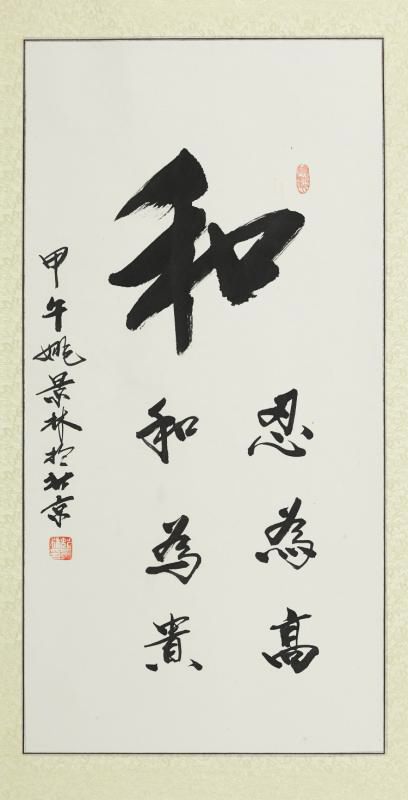 和
忍為高
和為貴
甲午姚景林於北京